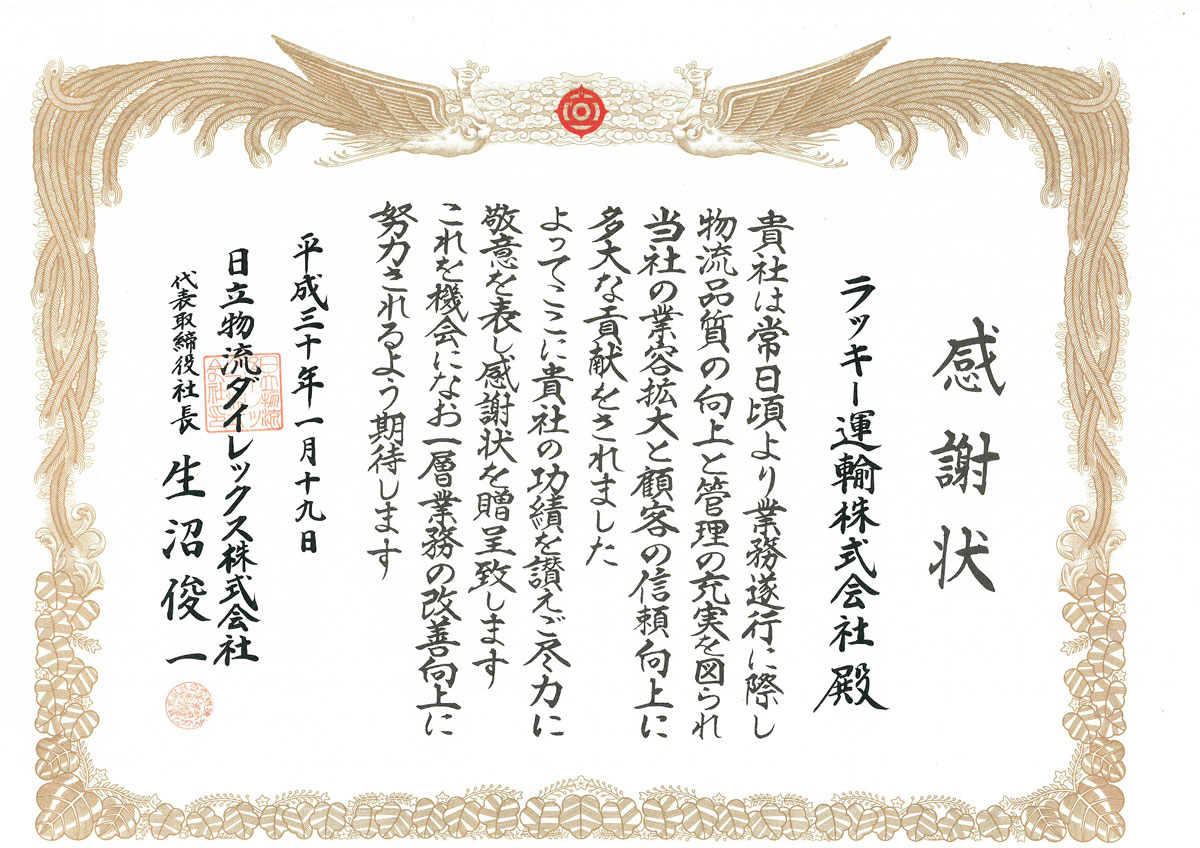 感謝状
ラッキー運輸株式会社 殿
貴社は常日頃より業務遂行に際し
物流品質の向上と管理の充実を図られ
当社の業容拡大と顧客の信頼向上に
多大な貢献をされました
よってここに貴社の功績を讃えご尽力に
敬意を表し感謝状を贈呈致します
これを機会になお一層業務の改善向上に
努力されるよう期待します
平成三十年一月十九日
日立物流ダイレックス株式会社
代表取締役社長 生沼俊一